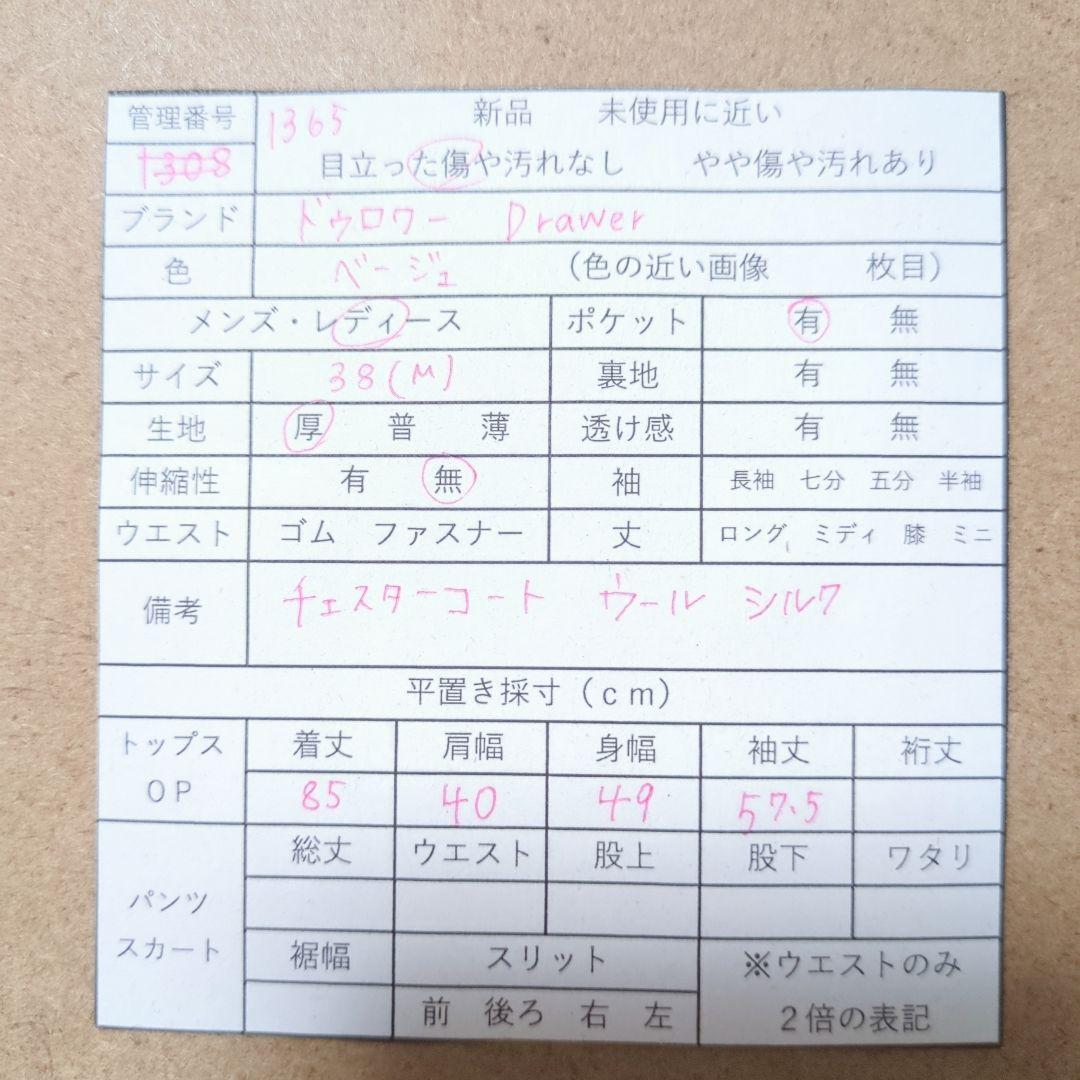 管理番号 1365 新品 未使用に近い
1308 目立った傷や汚れなし やや傷や汚れあり
ブランド ドゥロワー Drawer
色 ベージュ (色の近い画像 枚目)
メンズ・レディース ポケット 有 無
サイズ 38(M) 裏地 有 無
生地 厚 普 薄 透け感 有 無
伸縮性 有 無 袖 長袖 七分 五分 半袖
ウエスト ゴム ファスナー 丈 ロング ミディ 膝 ミニ
備考 チェスターコート ウール シルク
平置き採寸(cm)
トップス 着丈 肩幅 身幅 袖丈 裄丈
OP 85 40 49 57.5
総丈 ウエスト 股上 股下 ワタリ
パンツ
スカート 裾幅 スリット ※ウエストのみ
前 後ろ 右 左 2倍の表記